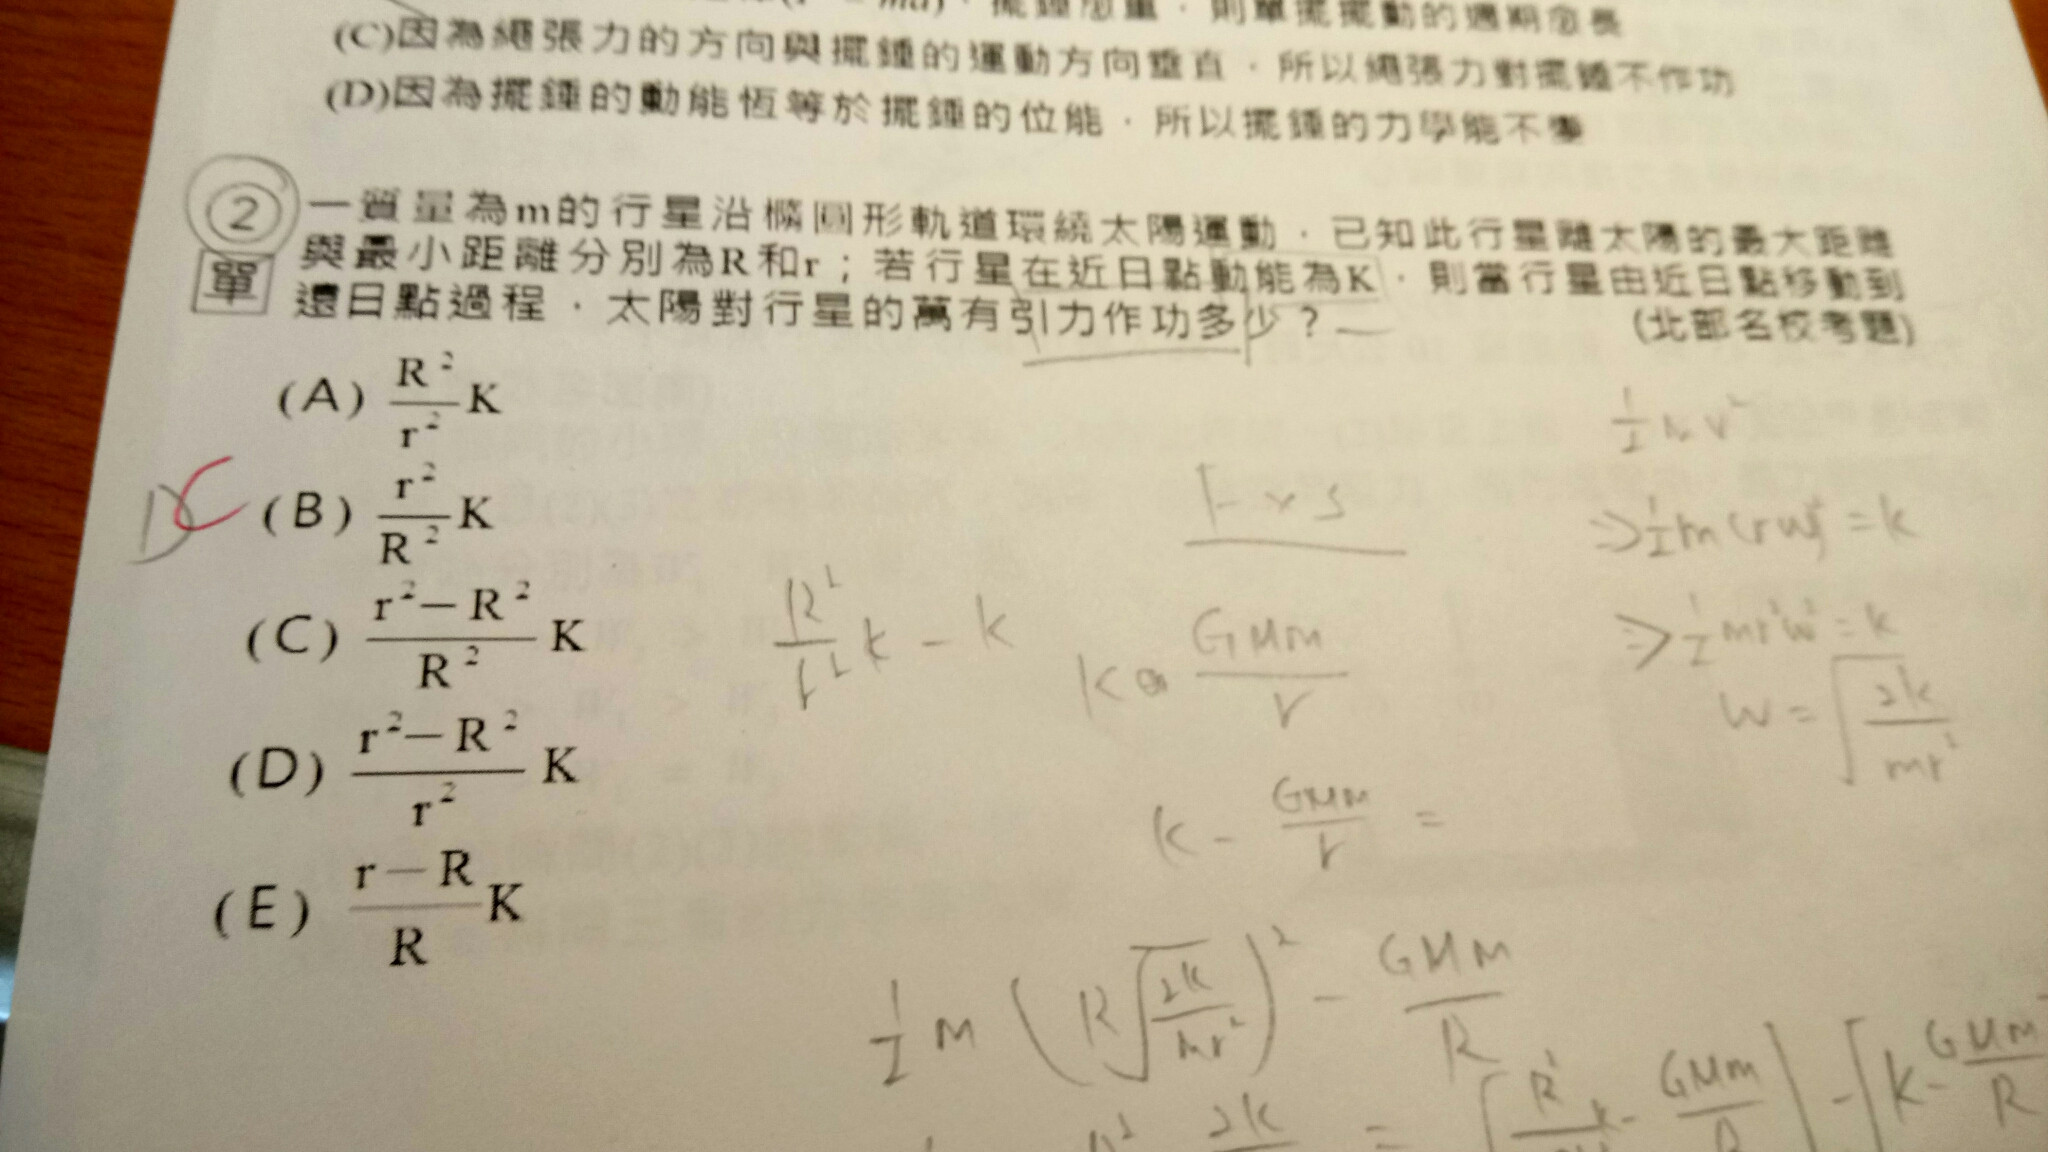 擺錘愈重，則單擺擺動的週期愈長
(C)因為繩張力的方向與擺錘的運動方向垂直，所以繩張力對擺錘不作功
(D)因為擺錘的動能恆等於擺錘的位能，所以擺錘的力學能不變
2 一質量為m的行星沿橢圓形軌道環繞太陽運動，已知此行星離太陽的最大距離
單 與最小距離分別為R和r；若行星在近日點動能為K，則當行星由近日點移動到
遠日點過程，太陽對行星的萬有引力作功多少？ (北部名校考題)
(A) R²/r² K
D C (B) r²/R² K
(C) r²－R²/R² K
(D) r²－R²/r² K
(E) r－R/R K
F×s
R²/r² k - k
GMm/r
k - GMm/r =
½ m (R√(2k/mr²))² - GMm/R
⇒ ½m(rw)² = k
⇒ ½mr²w² = k
w = √(2k/mr²)